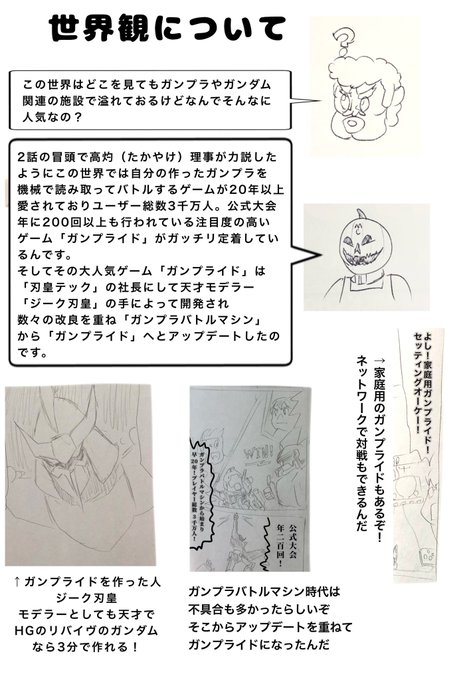 世界観について
この世界はどこを見てもガンプラやガンダム
関連の施設で溢れておるけどなんでそんなに
人気なの？
?
2話の冒頭で高灼（たかやけ）理事が力説した
ようにこの世界では自分の作ったガンプラを
機械で読み取ってバトルするゲームが20年以上
愛されておりユーザー総数3千万人。公式大会
年に200回以上も行われている注目度の高い
ゲーム「ガンプライド」がガッチリ定着してい
るんです。
そしてその大人気ゲーム「ガンプライド」は
「刃皇テック」の社長にして天才モデラー
「ジーク刃皇」の手によって開発され
数々の改良を重ね「ガンプラバトルマシン」
から「ガンプライド」へとアップデートしたの
です。
よし！家庭用ガンプライド！
セッティングオーケー！
→家庭用のガンプライドもあるぞ！
ネットワークで対戦もできるんだ
WIN!
ガンプラバトルマシンから始まり
早20年！プレイヤー総数3千万人！
公式大会
年二百回！
↑ガンプライドを作った人
ジーク刃皇
モデラーとしても天才で
HGのリバイヴのガンダム
なら3分で作れる！
ガンプラバトルマシン時代は
不具合も多かったらしいぞ
そこからアップデートを重ねて
ガンプライドになったんだ